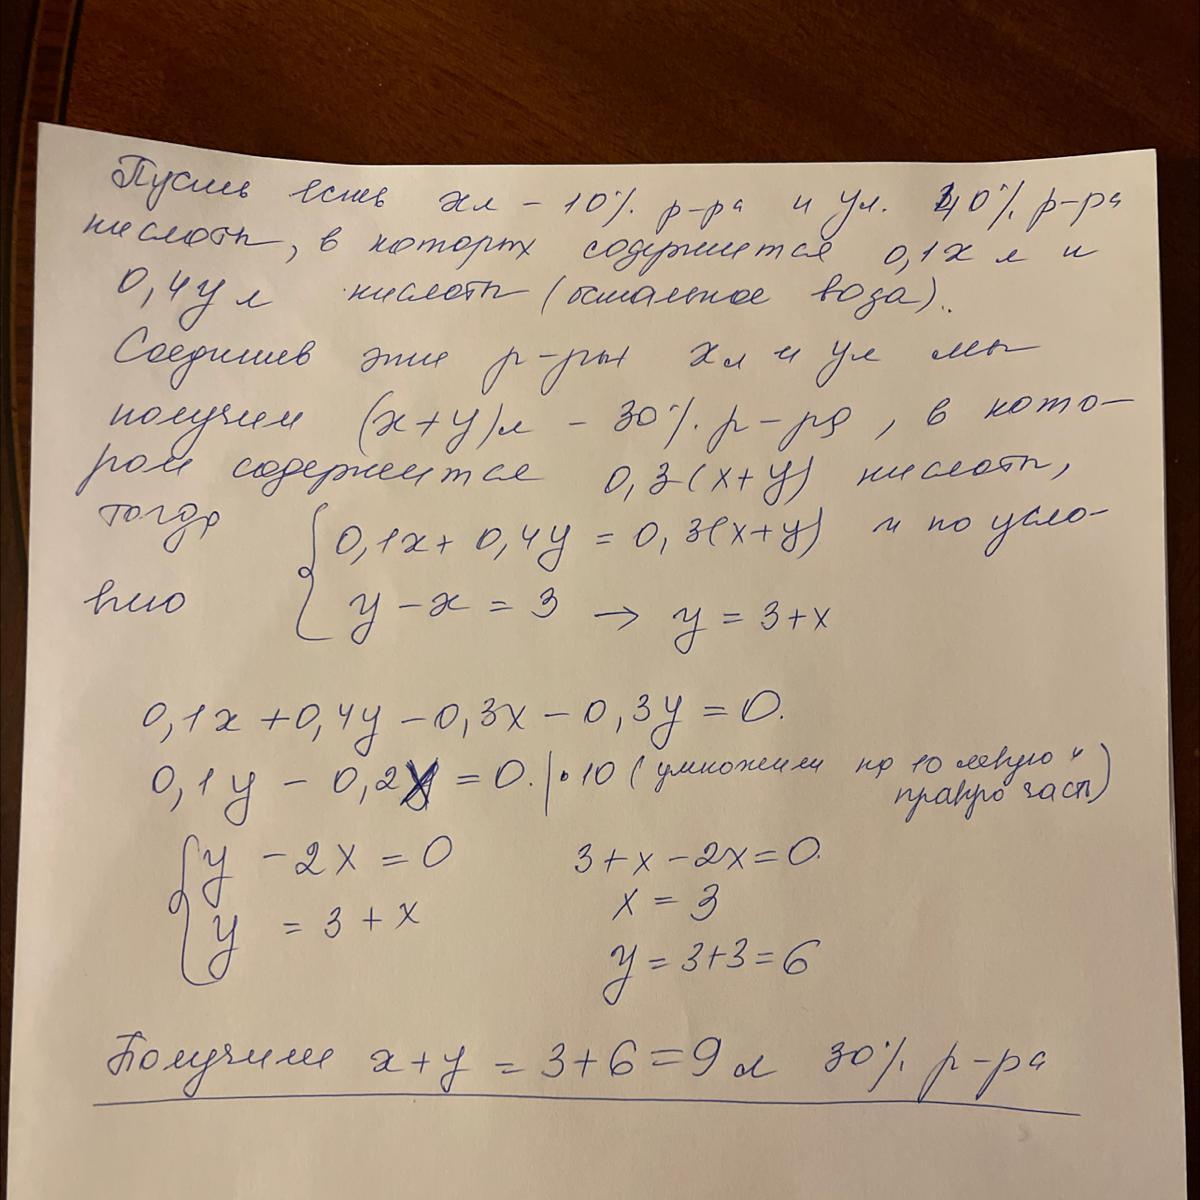 Пусть есть х л – 10% р-ра и у л. 40% р-ра
кислоты, в которых содержится 0,1х л и
0,4у л кислоты (остальное вода).
Соединив эти р-ры х л и у л мы
получим (х+у) л – 30% р-ра, в кото-
ром содержится 0,3(х+у) кислоты,
тогда { 0,1х + 0,4у = 0,3(х+у) и по усло-
вию у – х = 3 → у = 3+х
0,1х + 0,4у – 0,3х – 0,3у = 0.
0,1у – 0,2х = 0. | • 10 (умножим на 10 левую и
правую част)
{ у – 2х = 0 3+х – 2х = 0.
у = 3 + х х = 3
у = 3+3 = 6
Получим х+у = 3+6 = 9 л 30% р-ра